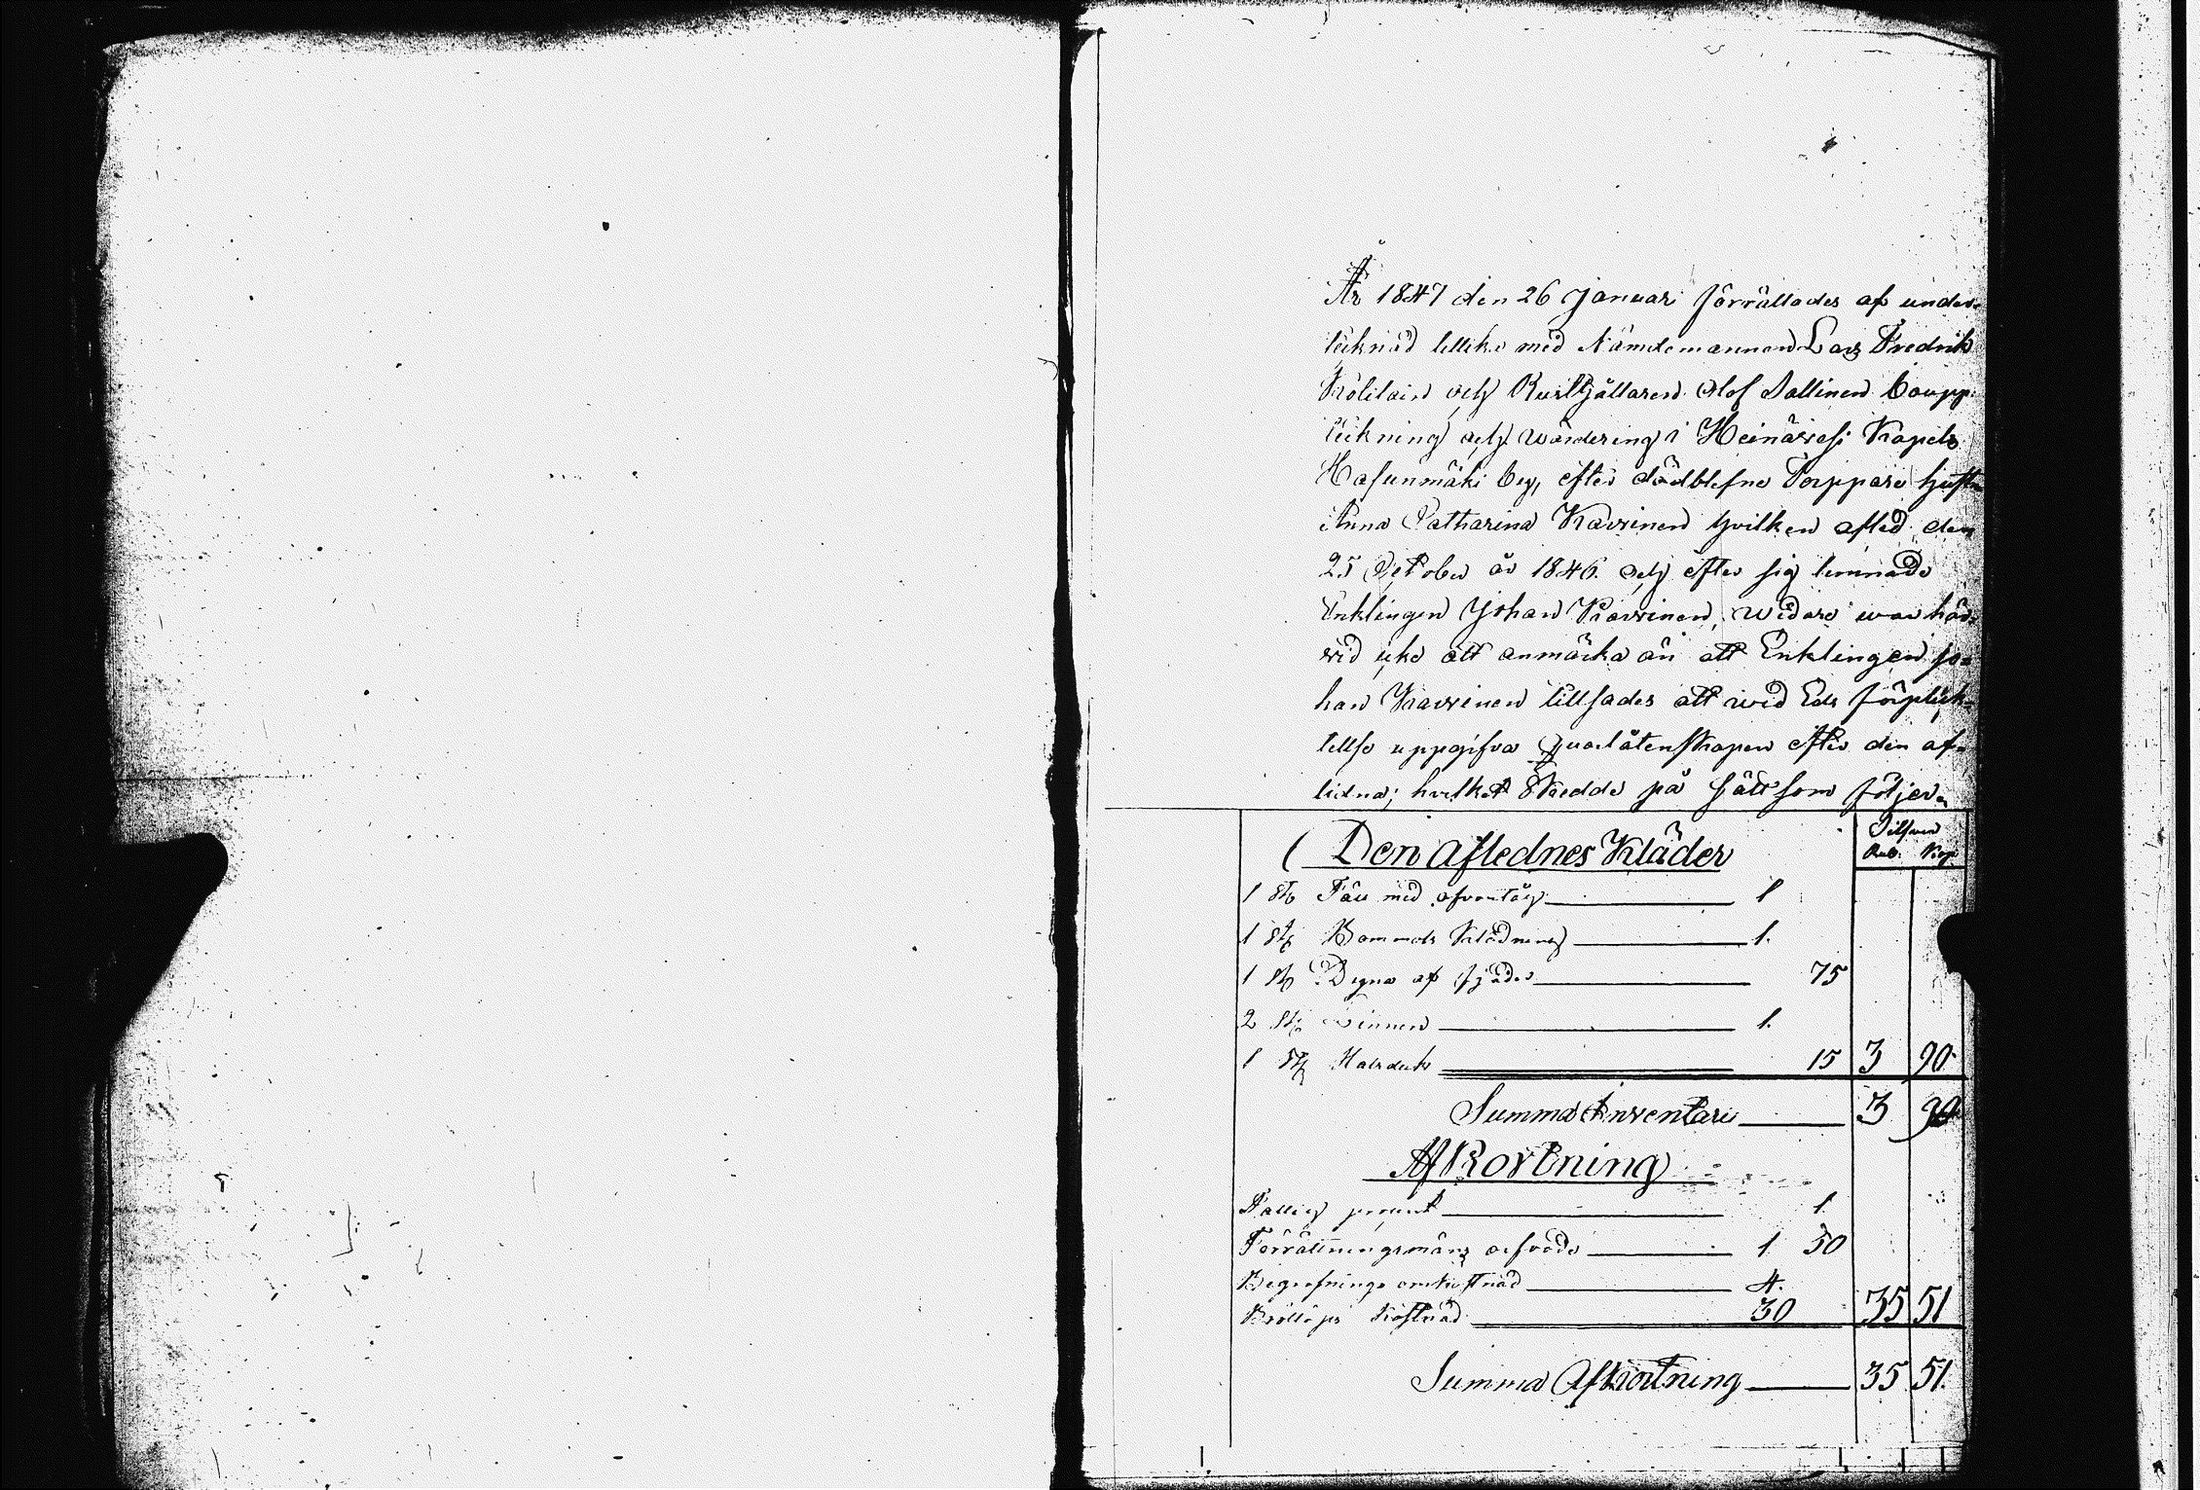 År 1847 den 26 Januari förrättades af under-
tecknad tillika med Nämdemannen Lars Fredrik
och Rusthållaren Olof Sallinen boupp-
teckning och wärdering i Heinävesi Kapels
Hasunmäki by, efter dödblefne Torppare hustru
Anna Catharina Kavrinen hvilken afled den
25 October år 1846. och efter sig lemnade
Enklingen Johan Kavrinen, widare war här-
vid icke att anmärka än att Enklingen Jo-
han Kavrinen tillsades att wid Eds förplick-
tellse uppgifva qvarlåtenskapen efter den af-
lidna; hvilket Skedde på sätt som följer.
Den aflednes Kläder
Silfver
Rub. Kop
1 St. med 1
1 St. Bommols Klädning 1.
1 St. af 75
2 St. Linnen 1.
1 St. Halsduk 15 3 90.
Summa Inventari 3 90
AfKortning
Fattig procent 1
Förrättningsmäns arfvode 1 50
Begrafnings omkostnad 4.
Bröllops Kostnad 30 35 51
Summa Afkortning 35 51.